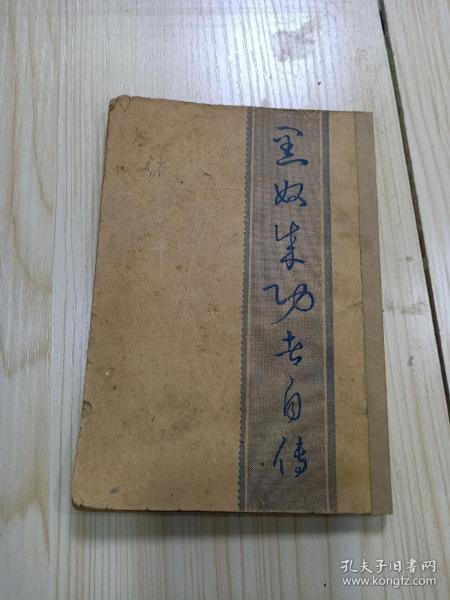 黑奴成功者自传
孔夫子旧书网
www.kongfz.com